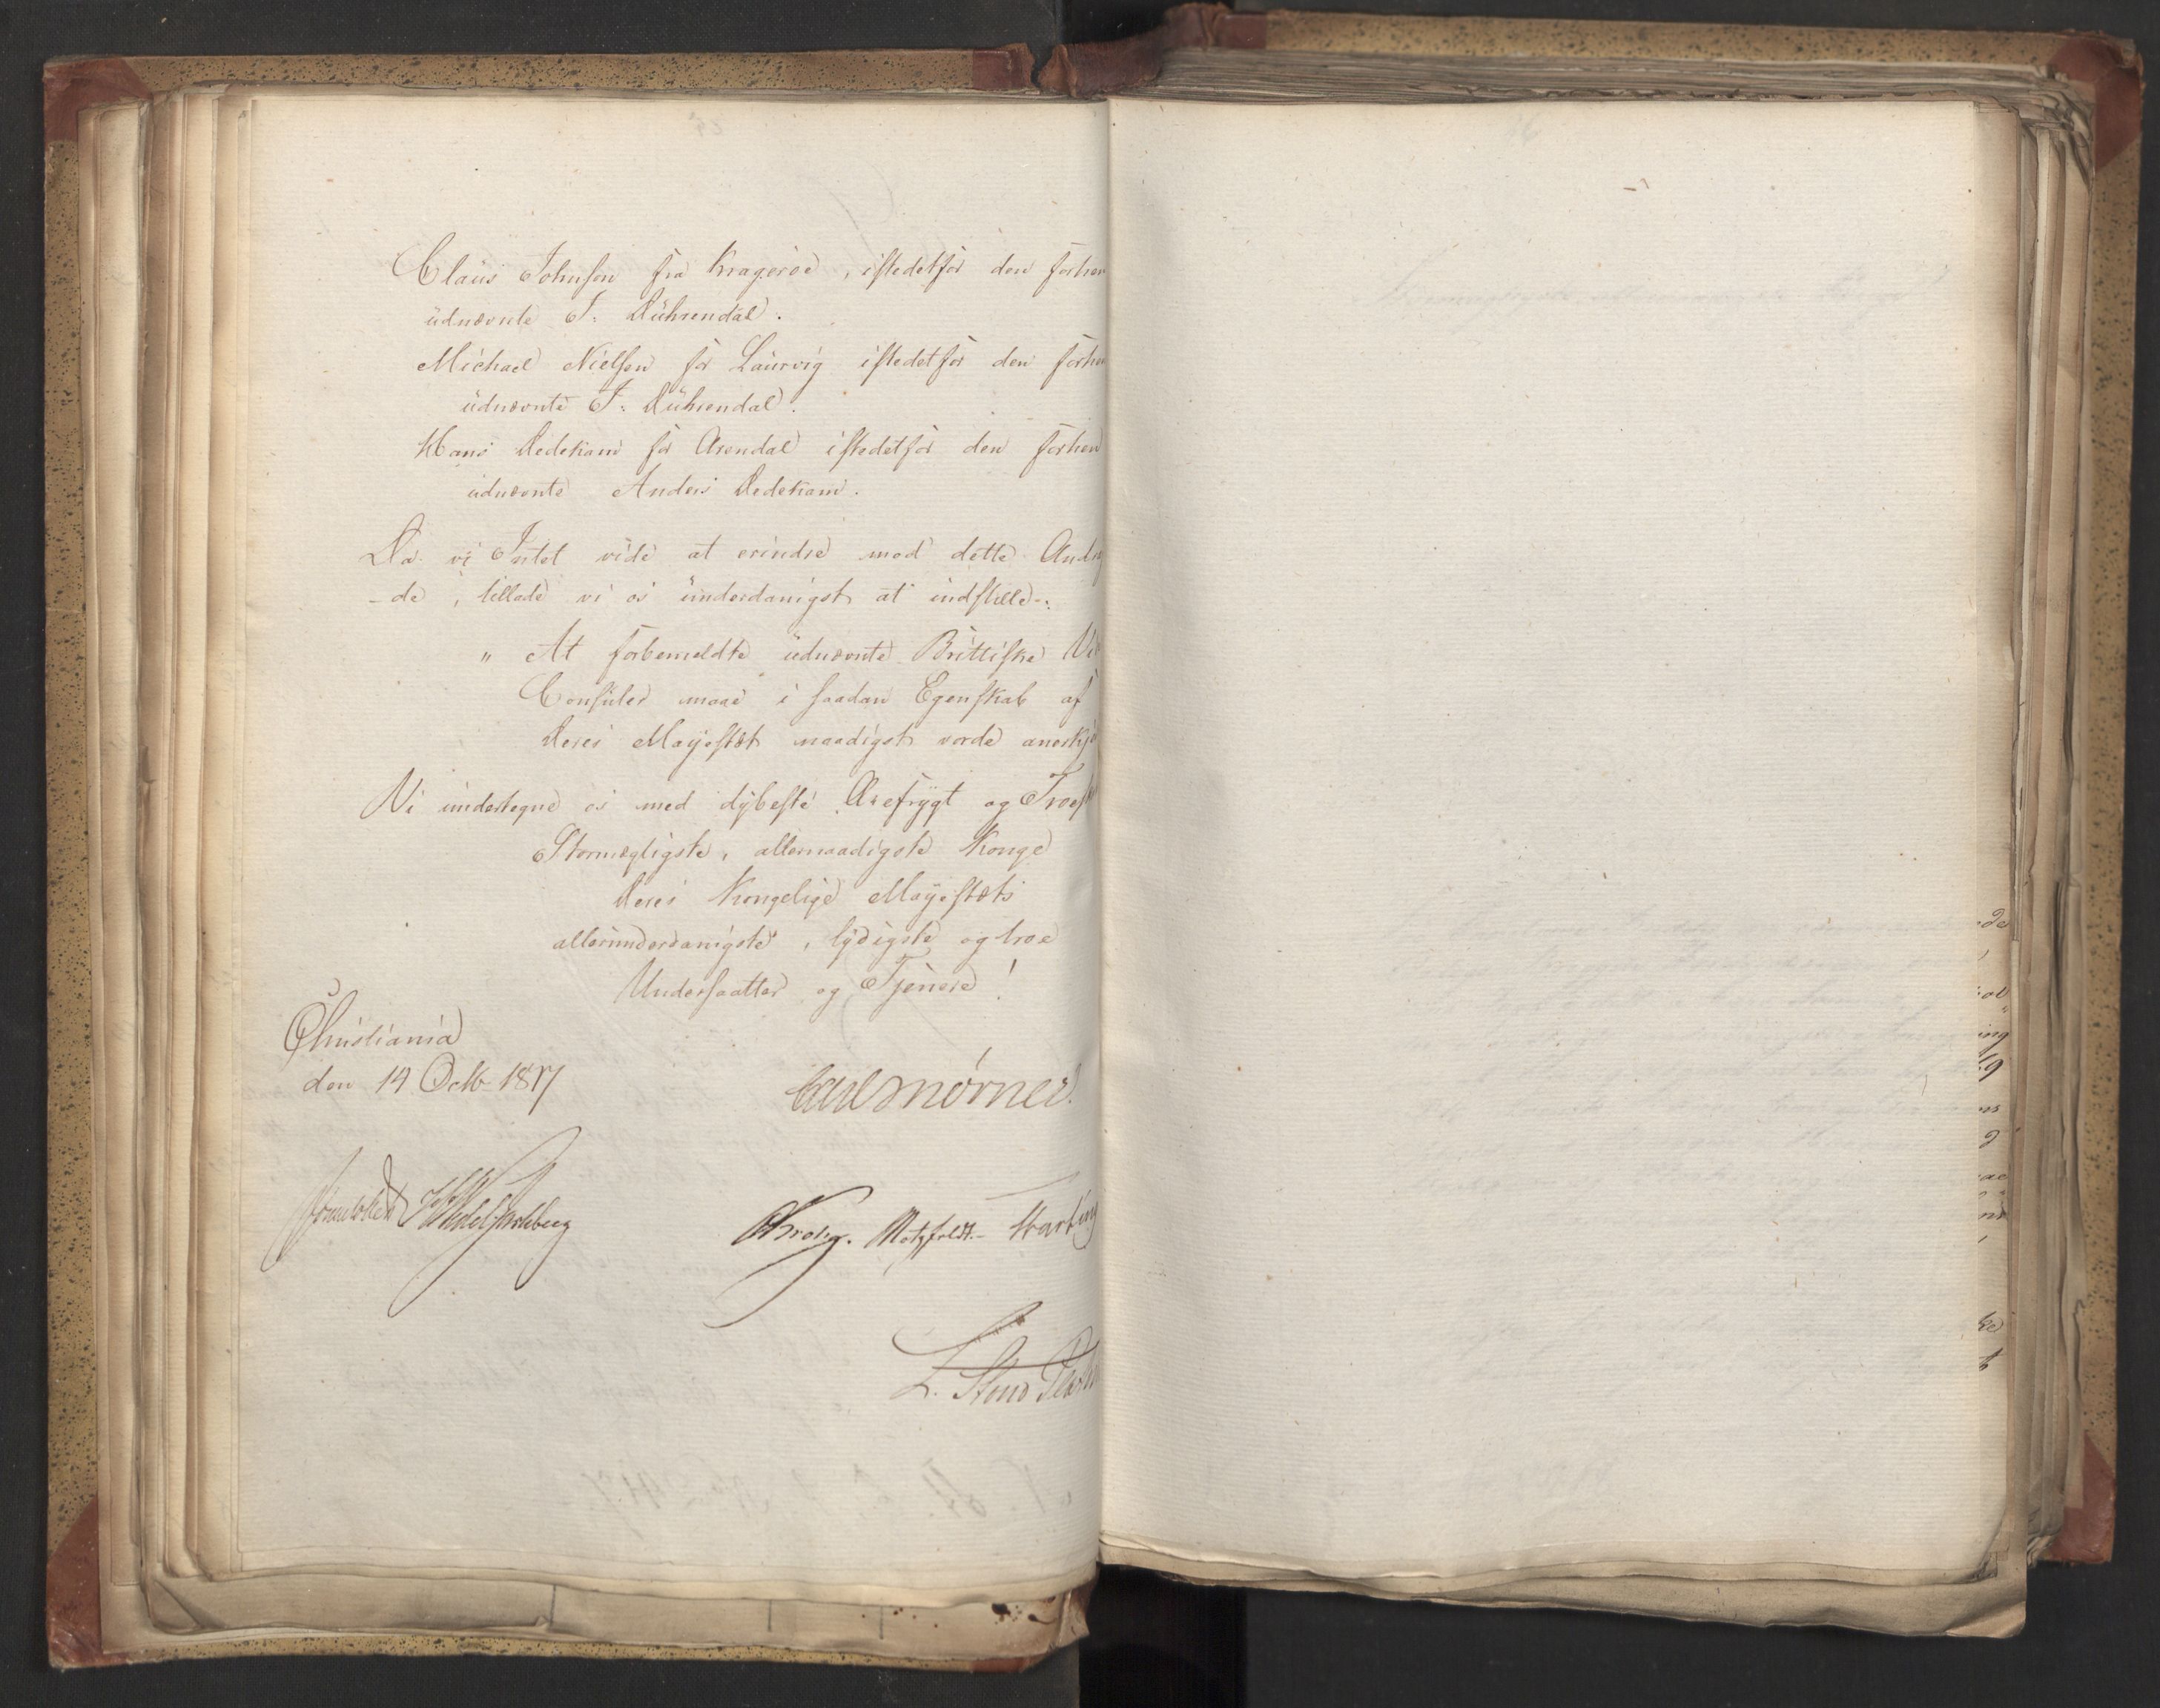 Claus Johnsen fra Kragerøe, istedetfor den forhen
udnævnte J: Dührendal.
Michael Nielsen for Laurvig istedetfor den forhen
udnævnte J: Dührendal.
Hans Dedekam for Arendal istedetfor den forhen
udnævnte Anders Dedekam.
Da vi Intet vide at erindre mod dette Andra
-de, tillade vi os underdanigst at indstille:
" At forbemeldte udnævnte Brittiske Vi
Consuler maae i saadan Egenskab af
Deres Majestæt naadigst vorde anerkje
Vi undertegne os med dybeste Ærefrygt og Troesk
Stormægtigste, allernaadigste Konge
Deres Kongelige Majestæts
allerunderdanigste, lydigste og troe
Undersaatter og Tjenere!
Christiania
den 14 Octb 1817
Carl Mörner.
Sommerhielm JHWedel Jarlsberg
Krohg. Motzfeldt. Hartvig
L. Stoud Platou
de
ing
19
ke